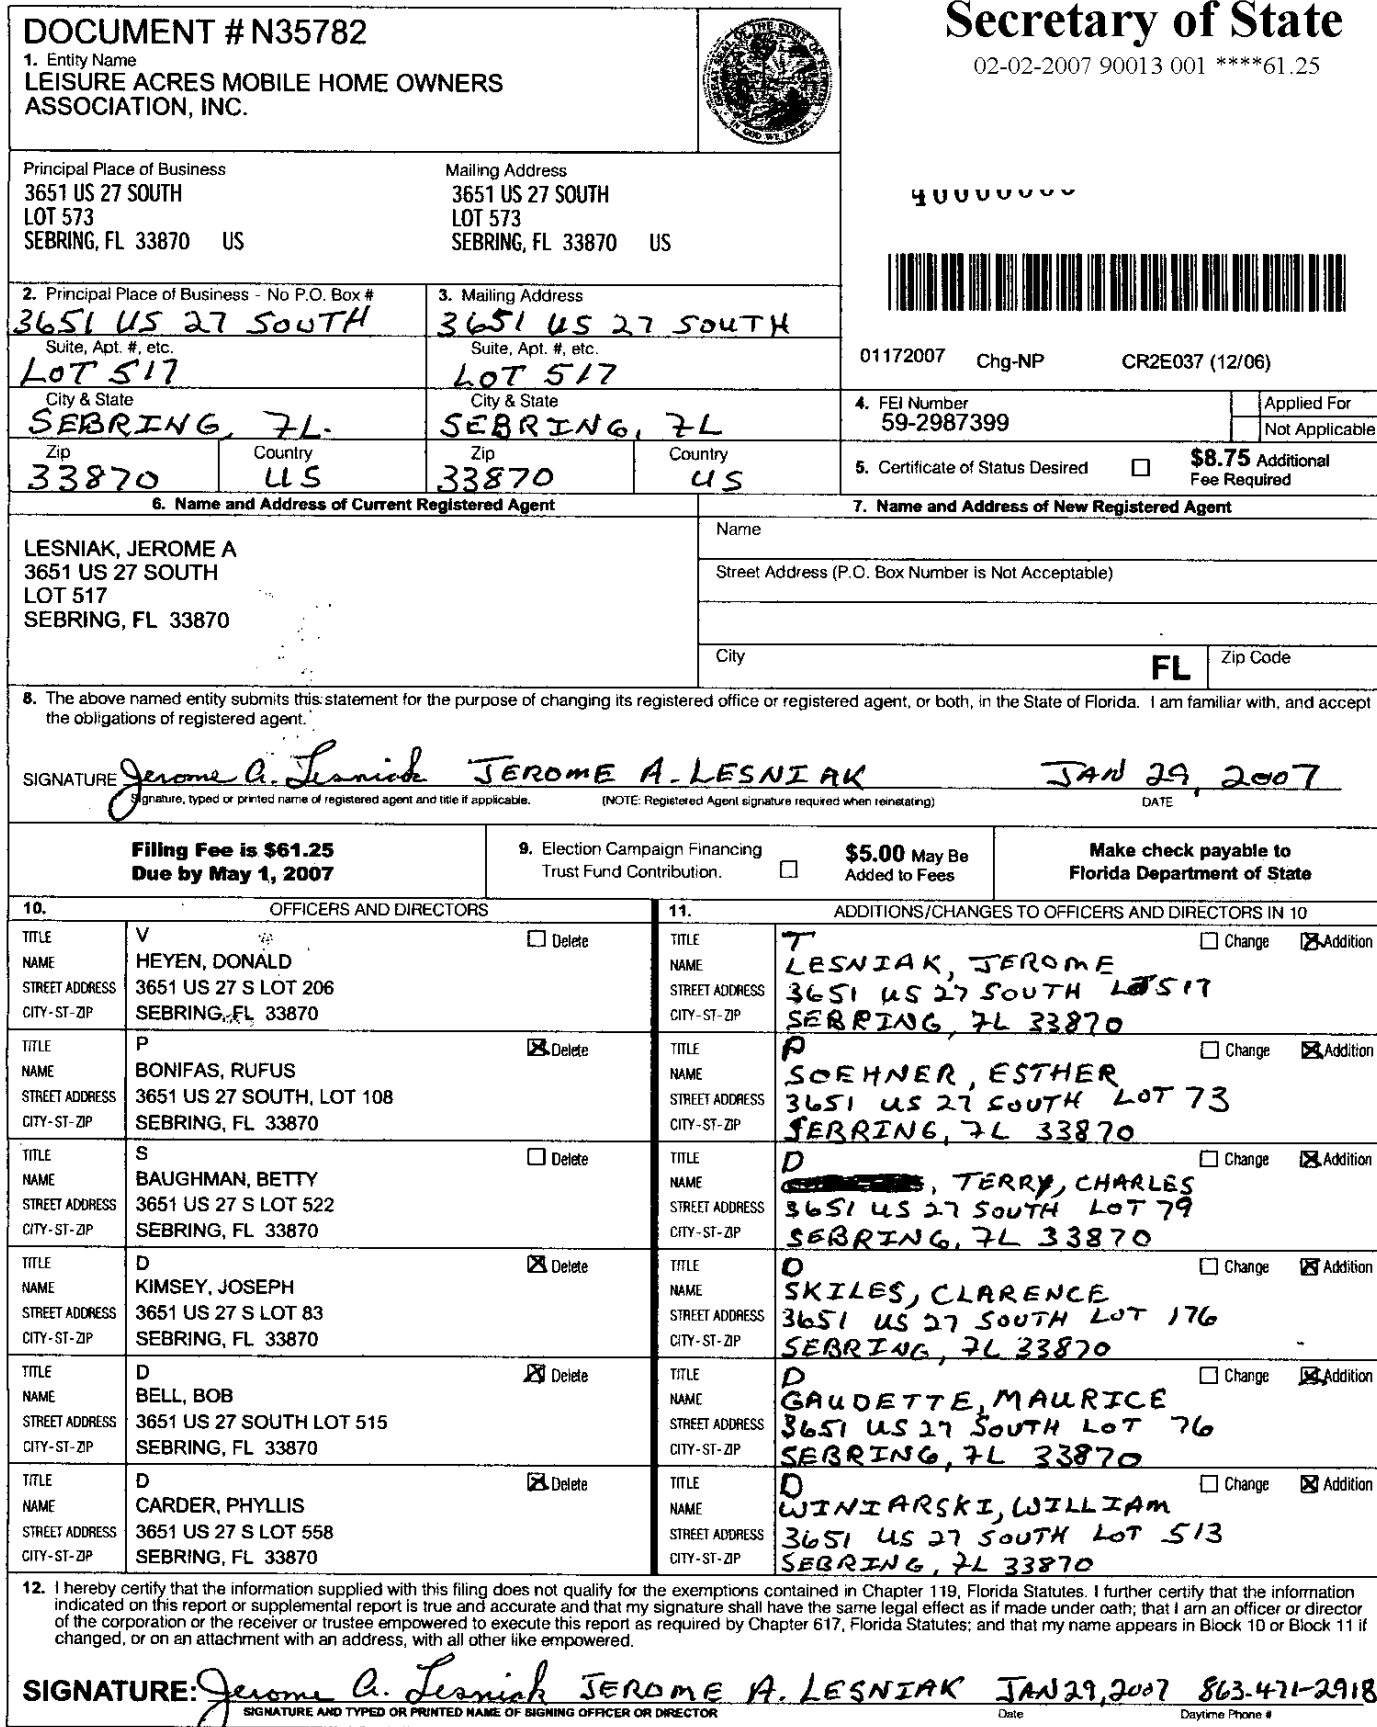 DOCUMENT # N35782
1. Entity Name
LEISURE ACRES MOBILE HOME OWNERS
ASSOCIATION, INC.
Secretary of State
02-02-2007 90013 001 ****61.25
Principal Place of Business
3651 US 27 SOUTH
LOT 573
SEBRING, FL 33870 US
Mailing Address
3651 US 27 SOUTH
LOT 573
SEBRING, FL 33870 US
2. Principal Place of Business - No P.O. Box #
3651 US 27 SOUTH
Suite, Apt. #, etc.
LOT 517
City & State
SEBRING, FL.
Zip
33870
Country
US
3. Mailing Address
3651 US 27 SOUTH
Suite, Apt. #, etc.
LOT 517
City & State
SEBRING, FL
Zip
33870
Country
US
01172007 Chg-NP CR2E037 (12/06)
4. FEI Number
59-2987399
Applied For
Not Applicable
5. Certificate of Status Desired
$8.75 Additional
Fee Required
6. Name and Address of Current Registered Agent
LESNIAK, JEROME A
3651 US 27 SOUTH
LOT 517
SEBRING, FL 33870
7. Name and Address of New Registered Agent
Name
Street Address (P.O. Box Number is Not Acceptable)
City
FL
Zip Code
8. The above named entity submits this statement for the purpose of changing its registered office or registered agent, or both, in the State of Florida. I am familiar with, and accept
the obligations of registered agent.
SIGNATURE Jerome A. Lesniak JEROME A. LESNIAK JAN 29, 2007
Signature, typed or printed name of registered agent and title if applicable. (NOTE: Registered Agent signature required when reinstating) DATE
Filing Fee is $61.25
Due by May 1, 2007
9. Election Campaign Financing
Trust Fund Contribution.
$5.00 May Be
Added to Fees
Make check payable to
Florida Department of State
10. OFFICERS AND DIRECTORS
TITLE V Delete
NAME HEYEN, DONALD
STREET ADDRESS 3651 US 27 S LOT 206
CITY-ST-ZIP SEBRING, FL 33870
TITLE P Delete
NAME BONIFAS, RUFUS
STREET ADDRESS 3651 US 27 SOUTH, LOT 108
CITY-ST-ZIP SEBRING, FL 33870
TITLE S Delete
NAME BAUGHMAN, BETTY
STREET ADDRESS 3651 US 27 S LOT 522
CITY-ST-ZIP SEBRING, FL 33870
TITLE D Delete
NAME KIMSEY, JOSEPH
STREET ADDRESS 3651 US 27 S LOT 83
CITY-ST-ZIP SEBRING, FL 33870
TITLE D Delete
NAME BELL, BOB
STREET ADDRESS 3651 US 27 SOUTH LOT 515
CITY-ST-ZIP SEBRING, FL 33870
TITLE D Delete
NAME CARDER, PHYLLIS
STREET ADDRESS 3651 US 27 S LOT 558
CITY-ST-ZIP SEBRING, FL 33870
11. ADDITIONS/CHANGES TO OFFICERS AND DIRECTORS IN 10
TITLE T Change Addition
NAME LESNIAK, JEROME
STREET ADDRESS 3651 US 27 SOUTH LOT 517
CITY-ST-ZIP SEBRING, FL 33870
TITLE P Change Addition
NAME SOEHNER, ESTHER
STREET ADDRESS 3651 US 27 SOUTH LOT 73
CITY-ST-ZIP SEBRING, FL 33870
TITLE D Change Addition
NAME , TERRY, CHARLES
STREET ADDRESS 3651 US 27 SOUTH LOT 79
CITY-ST-ZIP SEBRING, FL 33870
TITLE D Change Addition
NAME SKILES, CLARENCE
STREET ADDRESS 3651 US 27 SOUTH LOT 176
CITY-ST-ZIP SEBRING, FL 33870
TITLE D Change Addition
NAME GAUDETTE, MAURICE
STREET ADDRESS 3651 US 27 SOUTH LOT 76
CITY-ST-ZIP SEBRING, FL 33870
TITLE D Change Addition
NAME WINIARSKI, WILLIAM
STREET ADDRESS 3651 US 27 SOUTH LOT 513
CITY-ST-ZIP SEBRING, FL 33870
12. I hereby certify that the information supplied with this filing does not qualify for the exemptions contained in Chapter 119, Florida Statutes. I further certify that the information
indicated on this report or supplemental report is true and accurate and that my signature shall have the same legal effect as if made under oath; that I am an officer or director
of the corporation or the receiver or trustee empowered to execute this report as required by Chapter 617, Florida Statutes; and that my name appears in Block 10 or Block 11 if
changed, or on an attachment with an address, with all other like empowered.
SIGNATURE: Jerome A. Lesniak JEROME A. LESNIAK JAN 29, 2007 863-471-2918
SIGNATURE AND TYPED OR PRINTED NAME OF SIGNING OFFICER OR DIRECTOR Date Daytime Phone #